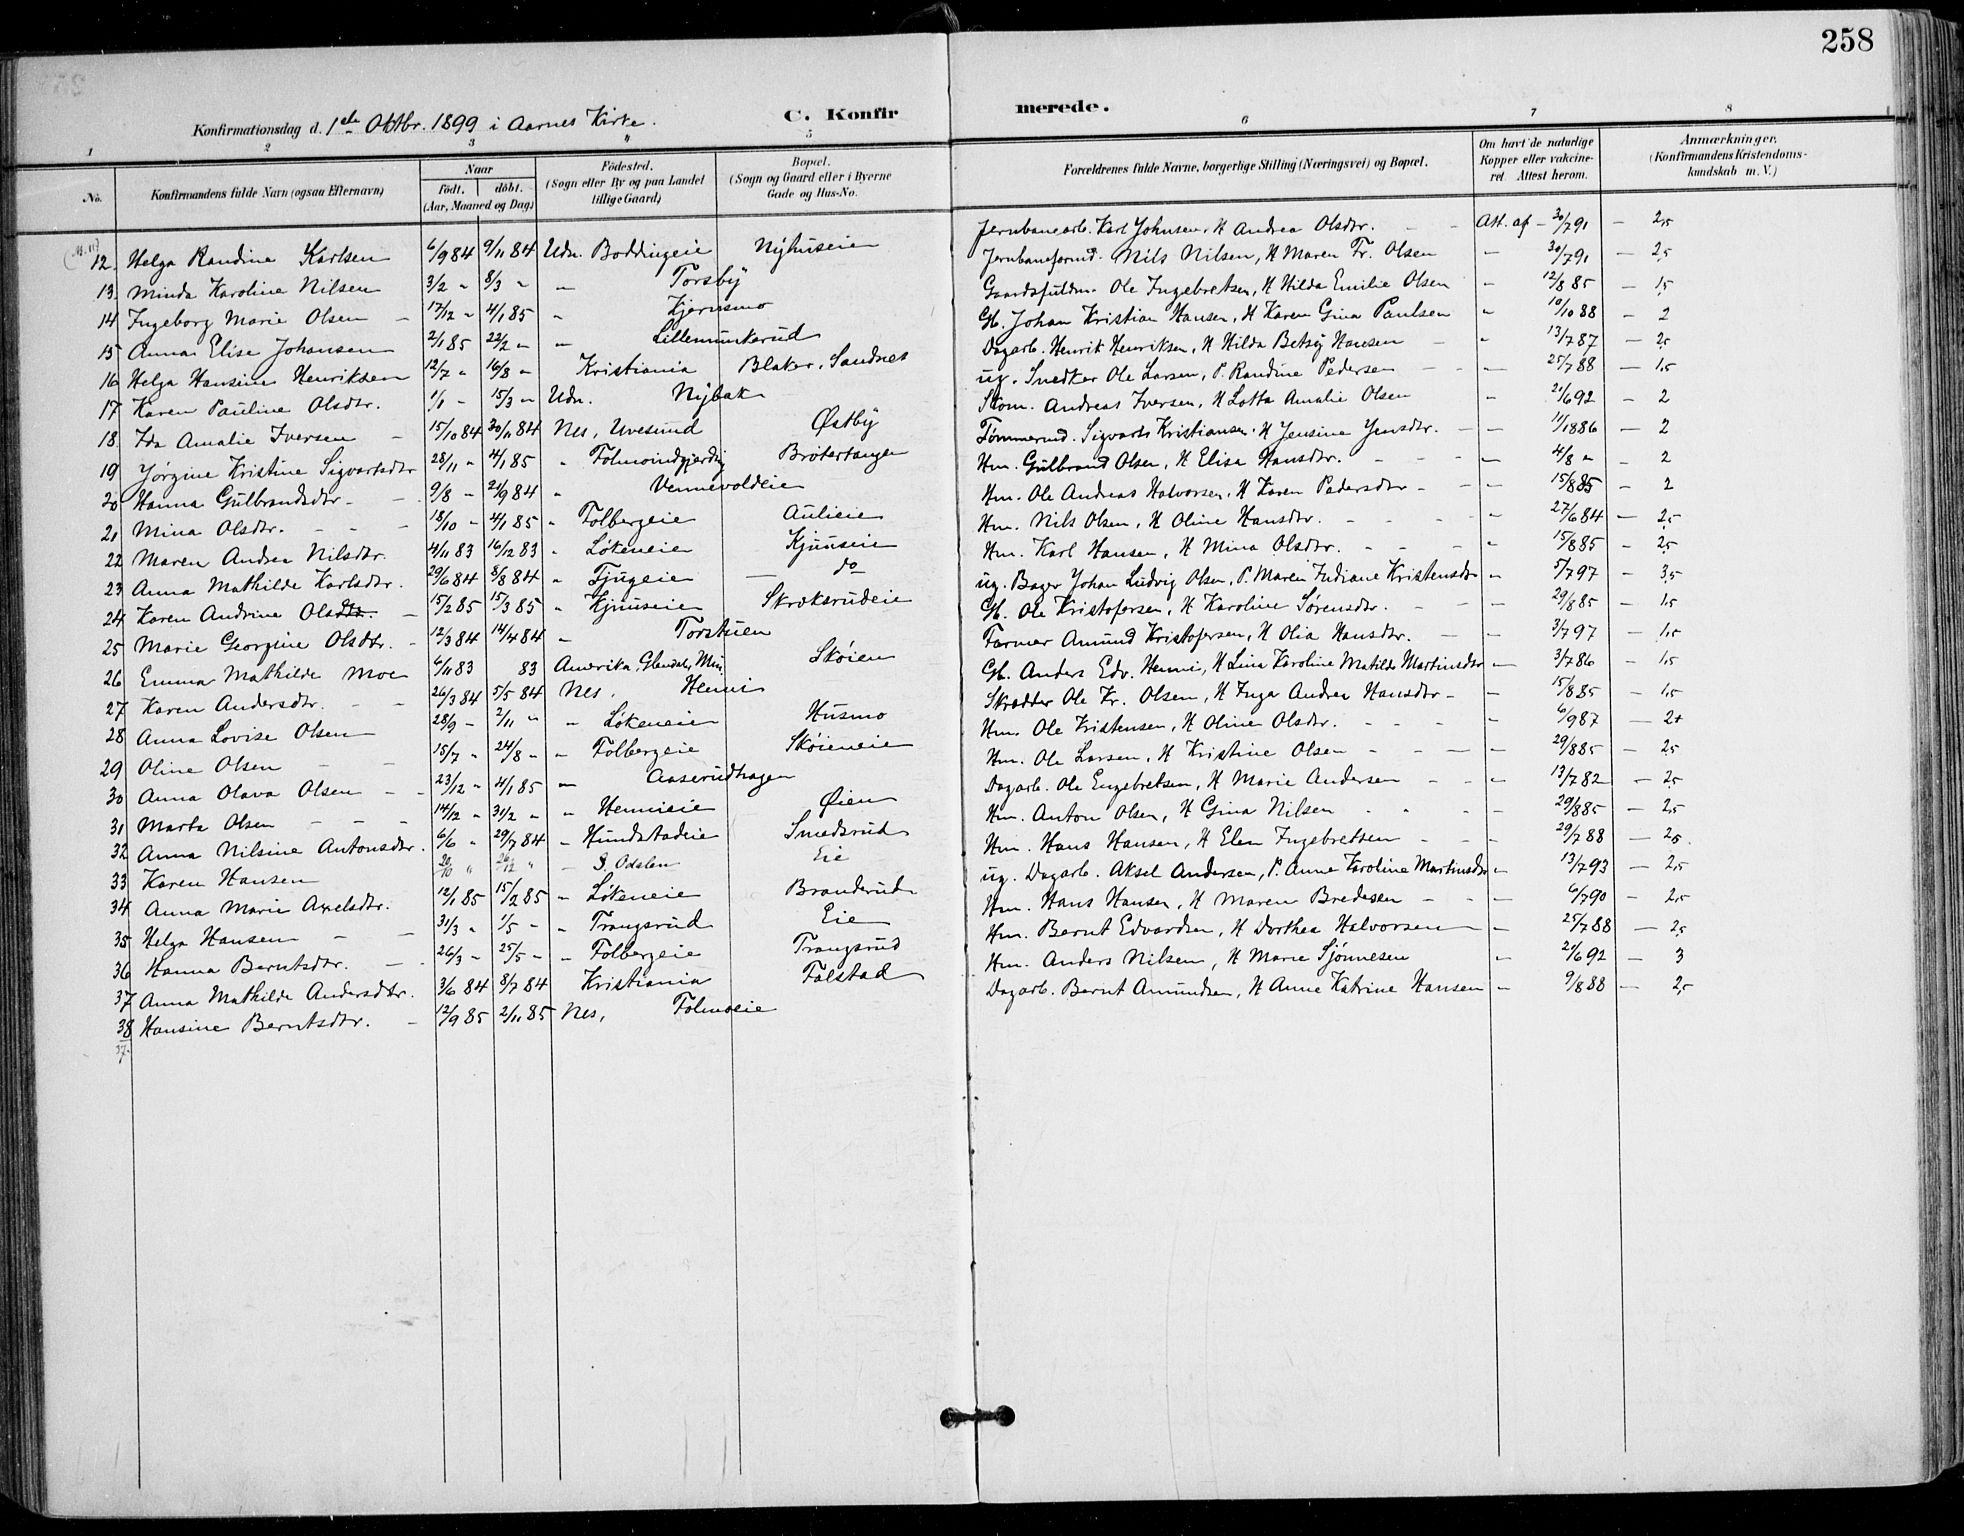 258
Konfirmationsdag d. 1ste Oktbr. 1899 i Aarnes Kirke.
C. Konfirmerede.
1 2 3 4 5 6 7 8
No. Konfirmandens fulde Navn (ogsaa Efternavn) Naar Födt, döbt. (Aar, Maaned og Dag) Födested. (Sogn eller By og paa Landet tillige Gaard) Bopæl. (Sogn og Gaard eller i Byerne Gade og Hus-No. Forældrenes fulde Navne, borgerlige Stilling (Næringsvei) og Bopæl. Om havt de naturlige Kopper eller vakcineret. Attest herom. Anmærkninger. (Konfirmandens Kristendomskundskab m. V.)
12. Helga Randine Karlsen 6/9 84 9/11 84 Udn. Boddingeie Nyhuseie Jernbanearb. Karl Johnsen, H Andrea Olsdtr. Att. af 30/7 91 - 2,5
13. Minda Karoline Nilsen 3/2 " 8/3 " " Torsby Jernbaneformd. Nils Nilsen, H Maren Fr. Olsen " 30/7 91 - 2,5
14 Ingeborg Marie Olsen - 17/12 " 4/1 85 " Kjernsmo Gaardsfuldm. Ole Ingebretsen, H Hilda Emilie Olsen " 12/8 85 - 1,5
15 Anna Elise Johansen 2/1 85 22/2 " " Lillemunkerud Gb. Johan Kristian Hansen, H Karen Gina Paulsen " 10/10 88 - 2
16 Helga Hansine Henriksen 12/7 " 16/8 " Kristiania Blaker, Sandnes Dagarb. Henrik Henriksen, H Hilda Betsy Hansen - " 13/7 87 - 2,5
17 Karen Pauline Olsdtr. 1/1 - 15/3 " Udn. Nybak ug. Snedker Ole Larsen, P. Randine Pedersen - - 25/7 88 - 1,5
18. Ida Amalie Iversen - 15/10 84 30/11 84 Nes, Uvesund Østby Skom. Andreas Iversen, H Lotta Amalie Olsen " 21/6 92 - 2
19 Jørgine Kristine Sigvartsdtr 28/11 " 4/1 85 " Brøtertangen Tømmermd. Sigvarts Kristiansen, H Jensine Jensdtr. - 11/8 86 - 2
20 Hanna Gulbrandsdtr - - 9/8 - 21/9 84 " Vennevoldeie Hm. Gulbrand Olsen, H Elisa Hansdtr. - - - 4/8 " - 2
21 Mina Olsdtr. - - - 18/10 - 4/1 85 " Folbergeie Aulieie Hm. Ole Andreas Halvorsen, H Karen Pedersdtr - - 15/8 85 - 2
22 Maren Andrea Nilsdtr. 4/11 83 16/12 83 " Løkeneie Kjuuseie Hm. Nils Olsen, H Oline Hansdtr. - - - 27/6 84 - 2,5
23 Anna Mathilde Karlsdtr. 29/6 84 8/8 84 " Tjugeie - do Hm. Karl Hansen, H Mina Olsdtr. - - - " 15/8 85 - 2,5
24 Karen Andrine Olsdtr. - 15/2 85 15/3 85 " Kjuuseie Skøksrudeie ug. Bager Johan Ludvig Olsen, P. Maren Indiane Kristensdtr " 5/7 97 - 3,5
25 Marie Georgine Olsdtr. - 12/3 84 14/4 84 " Torstuen Gb. Ole Kristofersen, H Karoline Sørensdtr. - - - 29/8 85 - 1,5
26 Emma Mathilde Moe 6/11 83 83 Amerika, Glendale, Min. Skøien Farmer Amund Kristofersen, H Olia Hansdtr. - - 3/7 97 - 1,5
27 Karen Andersdtr. - - 26/3 84 5/5 84 Nes, Henni Gb. Anders Edv. Henni, H Lina Karoline Matilde Martinsdtr - 3/7 86 - 1,5
28 Anna Lovise Olsen 28/9 - 2/11 " " Løkeneie Husmo Skrædder Ole Kr. Olsen, H Inga Andrea Hansdtr - - 15/8 85 - 1,5
29 Oline Olsen - - 15/7 " 24/8 - - Folbergeie Skøieneie Hm. Ole Kristensen, H Oline Olsdtr. - - - " 6/9 87 - 2+
30 Anna Olava Olsen - - 23/12 " 4/1 85 - Aaserudhagen Hm. Ole Larsen, H Kristine Olsen - - - - 29/8 85 - 2,5
31 Marta Olsen - - - 14/12 " 31/2 " " Hennieie Øien Dagarb. Ole Engebretsen, H Marie Andersen - - - 13/7 82 - 2,5
32 Anna Nilsine Antonsdtr. 6/6 " 29/7 84 - Hundstadeie Smedsrud Hm. Anton Olsen, H Gina Nilsen - - - 29/8 85 - 2,5
33 Karen Hansen 20/10 " 26/12 " - S. Odalen Eie Hm. Hans Hansen, H Elen Ingebretsen - - - 29/7 88 - 2,5
34 Anna Marie Axelsdtr. 12/1 85 15/2 85 - Løkeneie Branderud ug. Dagarb. Aksel Andersen, P. Anne Karoline Martinsdtr - 13/7 93 - 2,5
35 Helga Hansen - - 31/3 " 1/5 " " Trangsrud Eie Hm. Hans Hansen, H Maren Bredesen - - - 6/7 90 - 2,5
36 Hanna Berntsdtr. - - 26/3 - 25/5 - - Folbergeie Trangsrud Hm. Bernt Edvardsen, H Dorthea Halvorsen - - 25/7 88 - 2,5
37 Anna Mathilde Andersdtr. 3/6 84 8/7 84 Kristiania Falstad Hm. Anders Nilsen, H Marie Sjønnesen " 21/6 92 - 3
38 Hansine Berntsdtr. - 12/9 85 2/11 85 Nes, Folmoeie Dagarb. Bernt Amundsen, H Anne Katrine Hansen - 9/8 88 - 2,5
37.